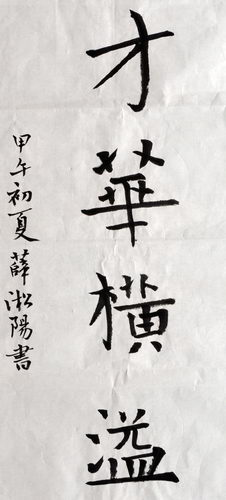 才華橫溢
甲午初夏薛淞陽書